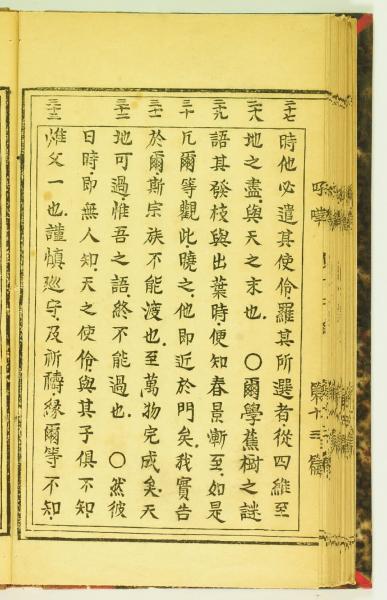 二十七 時他必遣其使伶羅其所選者、從四維至
二十八 地之盡、與天之末也、〇爾學蕉樹之謎
二十九 語其發枝與出葉時、便知春景漸至、如是
三十 凡爾等觀此曉之、他即近於門矣、我實告
三十一 於爾斯宗族不能渡也、至萬物完成矣、天
三十二 地可過、惟吾之語、終不能過也、〇然彼
日時、即無人知、天之使伶與其子俱不知、
三十三 惟父一也、謹慎廵守、及祈禱、緣爾等不知、
第十三篇